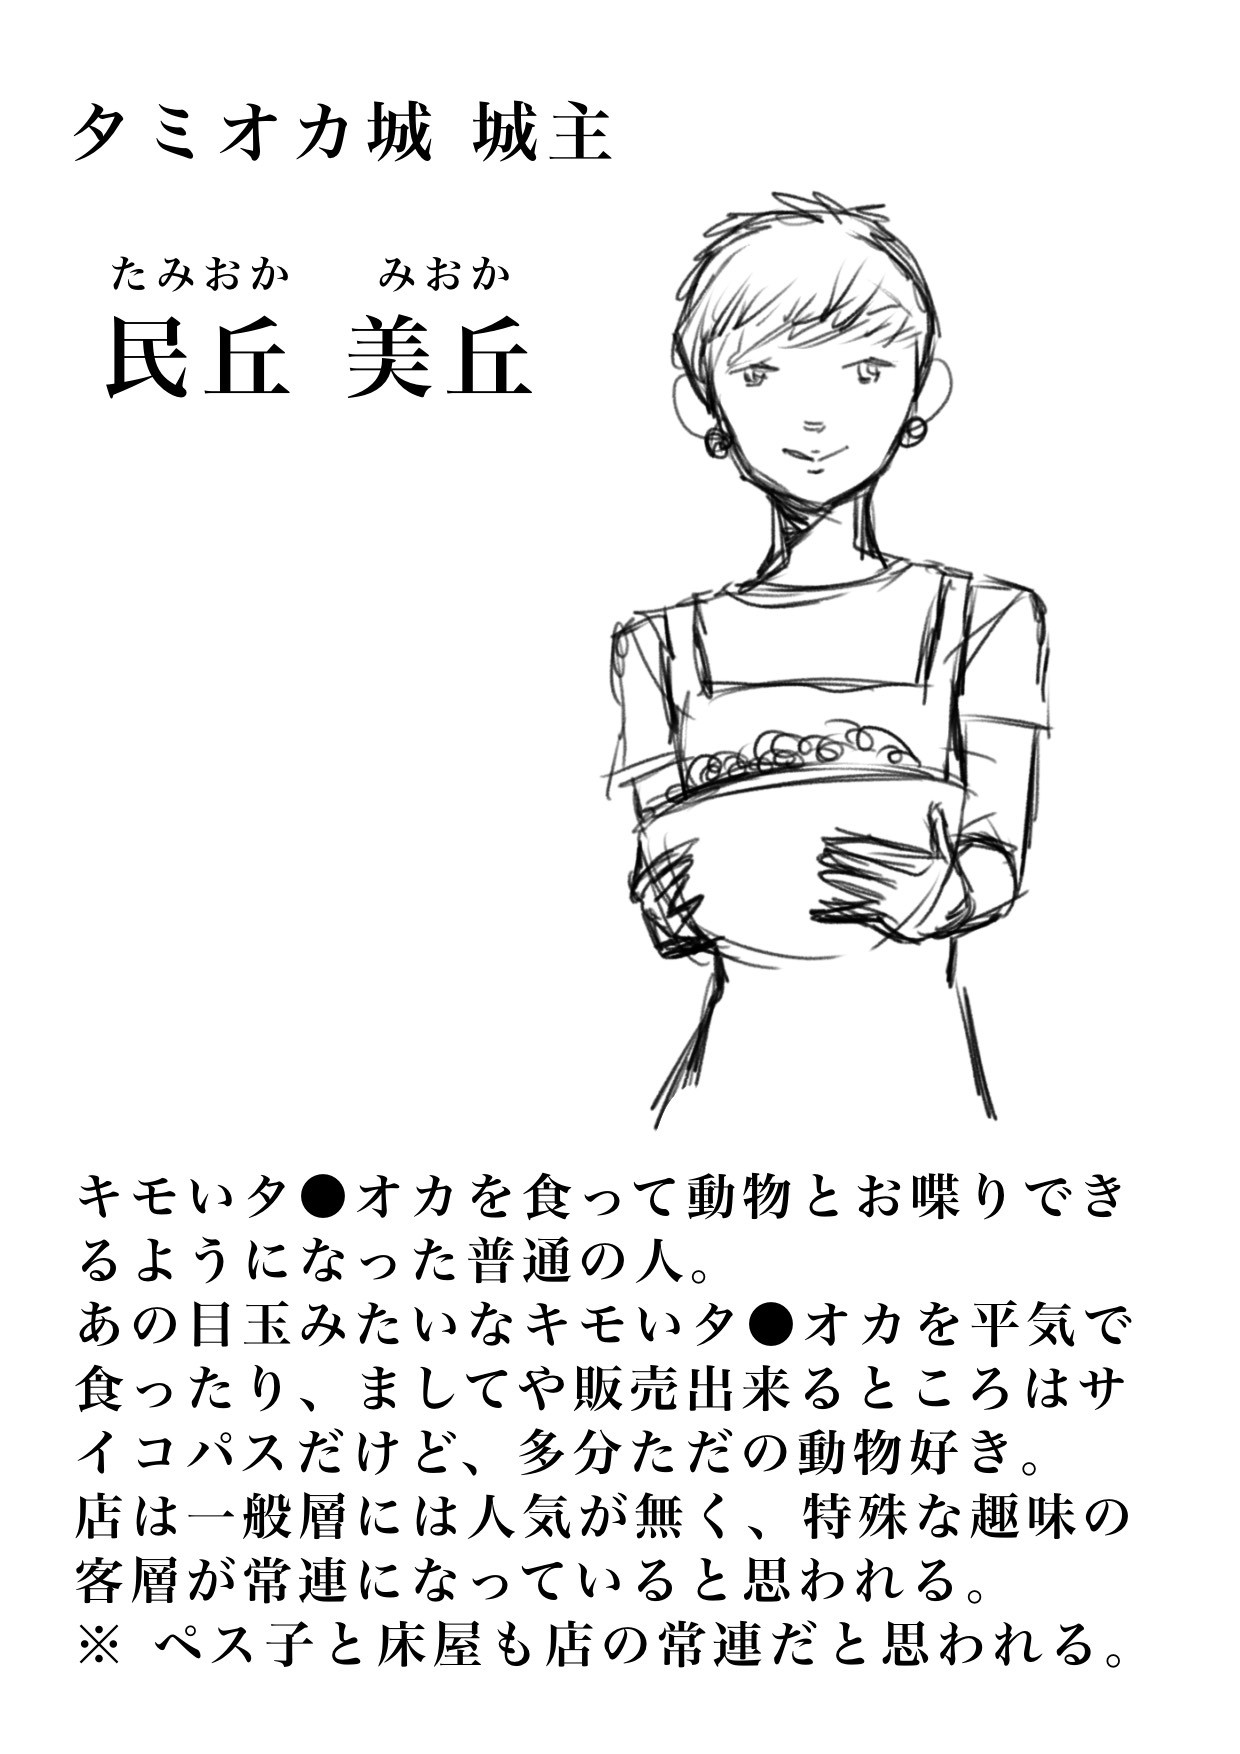 タミオカ城 城主
たみおか みおか
民丘 美丘
キモいタ●オカを食って動物とお喋りでき
るようになった普通の人。
あの目玉みたいなキモいタ●オカを平気で
食ったり、ましてや販売出来るところはサ
イコパスだけど、多分ただの動物好き。
店は一般層には人気が無く、特殊な趣味の
客層が常連になっていると思われる。
※ ペス子と床屋も店の常連だと思われる。